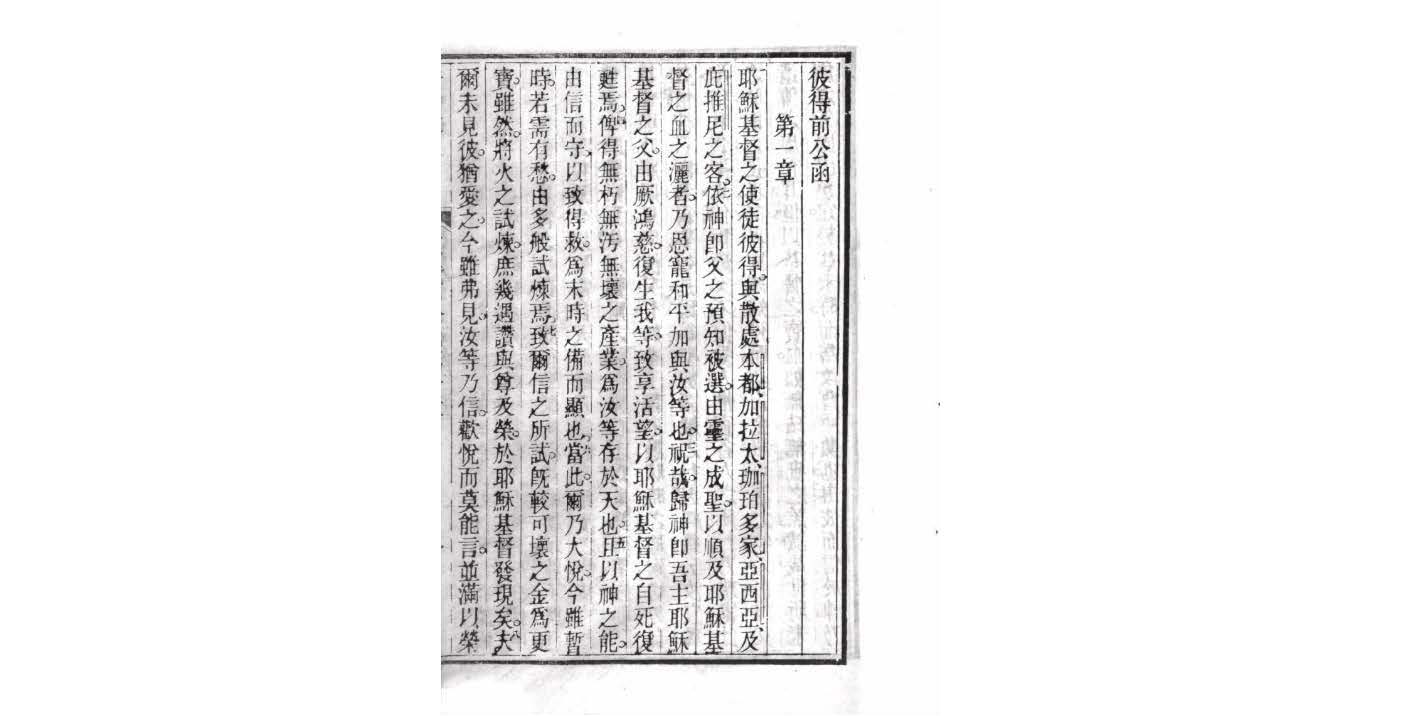 彼得前公函
第一章
耶穌基督之使徒彼得與散處本都、加拉太、珈珀多家、亞西亞、及
庇推尼之客。依神卽父之預知被選。由靈之成聖。以順及耶穌基
督之血之灑者、乃恩寵和平加與汝等也。祝哉、歸神卽吾主耶穌
基督之父。由厥鴻慈。復生我等、致享活望。以耶穌基督之自死復
甦焉。俾得無朽無汚無壞之產業。爲汝等存於天也。五且以神之能。
由信而守、以致得救。爲末時之備而顯也。六當此。爾乃大悅。今雖暫
時。若需有愁。由多般試煉焉。七致爾信之所試。旣較可壞之金爲更
寶。雖然。將火之試煉。庶幾遇讚與尊及榮。於耶穌基督發現矣。八夫
爾未見彼。猶愛之。今雖弗見。汝等乃信。歡悅而莫能言。並滿以榮